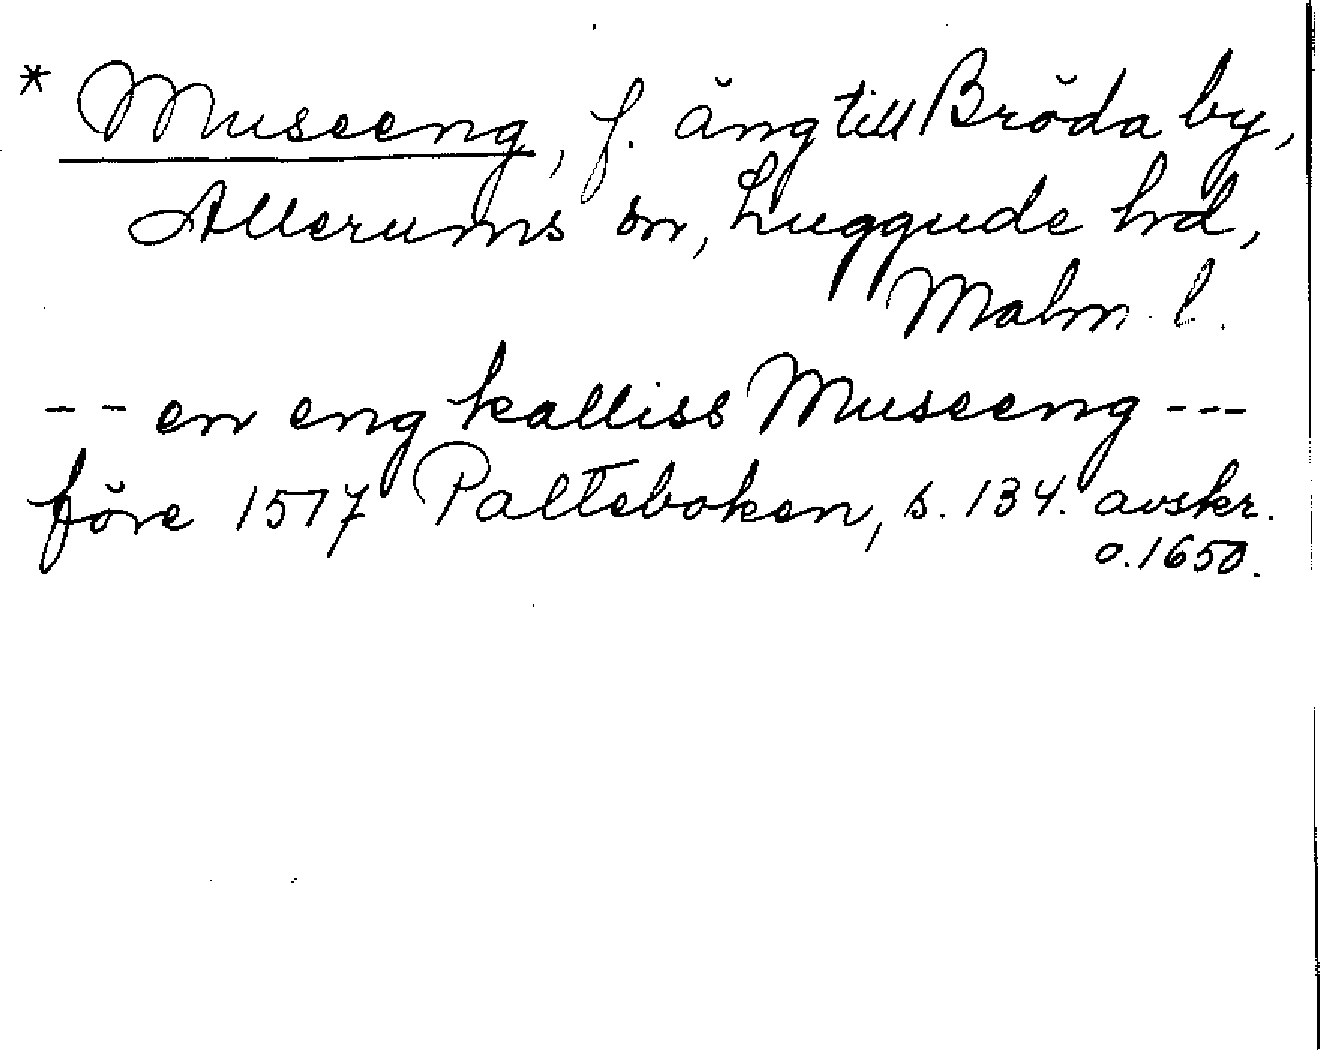 * Museeng, f. äng till Bröda by,
Allerums sn, Luggude hd,
Malm. l.
-- en eng kalliss Museeng ---
före 1517 Palteboken, s. 134. avskr.
o. 1650.